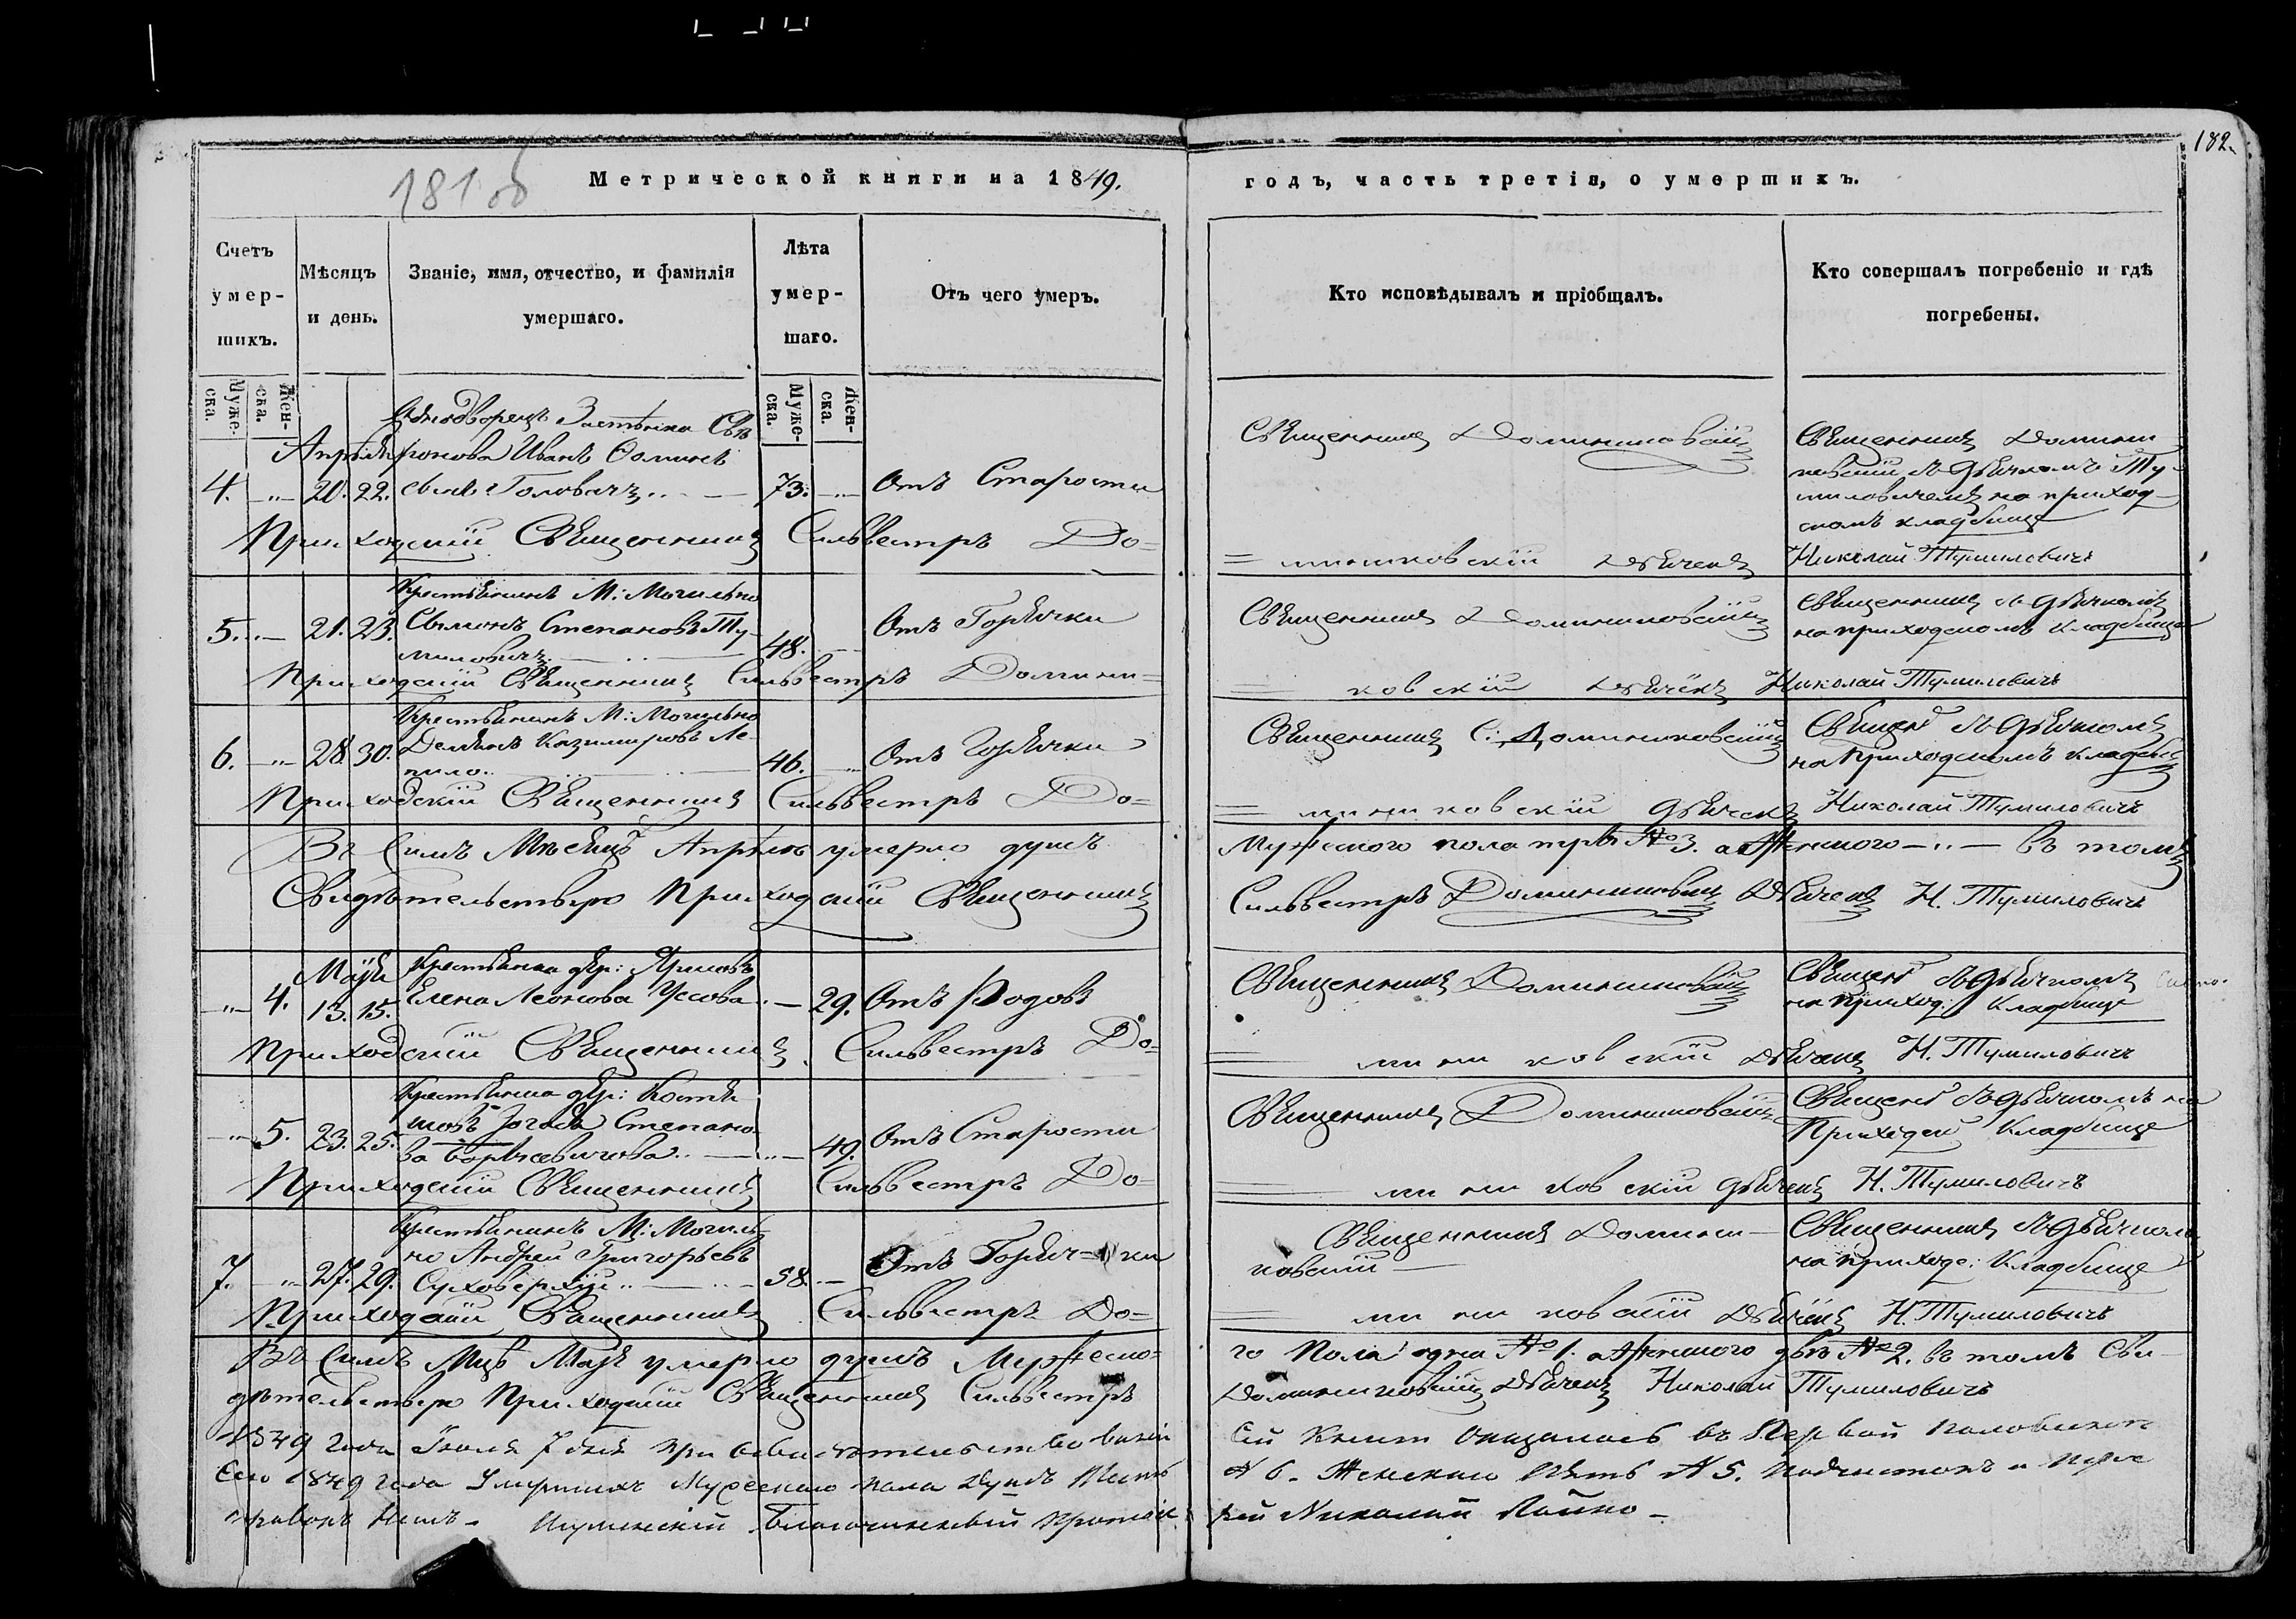 181 об
182
Метрической книги на 1849. годъ, часть третія, о умершихъ.
Счетъ умершихъ.
Мѣсяцъ и день.
Званіе, имя, отчество, и фамилія умершаго.
Лѣта умершаго.
Отъ чего умеръ.
Кто исповѣдывалъ и пріобщалъ.
Кто совершалъ погребеніе и гдѣ погребены.
Мужеска.
Женска.
Мужеска.
Женска.
Однодворецъ Застѣнка
Апрѣля
Иванъ
4. 20. 22. Головачъ 73. Отъ Старости
Священникъ Доминиковскій
Священникъ Домини
ковскій съ дьячкомъ Ту
миловичемъ на приход
скомъ кладбище
Приходскій Священникъ Сильвестръ До=
=миниковскій Дьячекъ Николай Тумиловичъ
Крестьянинъ М: Могильно
5. 21. 23. Сымонъ Степановъ Ту
миловичъ 48. Отъ Горячки
Священникъ Доминиковскій
Священникъ съ дьячкомъ
на приходскомъ кладбище
Приходскій Священникъ Сильвестръ Домини=
ковскій Дьячекъ Николай Тумиловичъ
Крестьянинъ М: Могильно
6. 28. 30. Демьянъ Казимировъ Ле
пило 46. Отъ Горячки
Священникъ С: Доминиковскій
Священ съ дьячкомъ
на Приходскомъ кладби
Приходскій Священникъ Сильвестръ До=
=миниковскій дьячекъ Николай Тумиловичъ
Въ Симъ Мѣсяцѣ Апрѣлѣ умерло душъ Мужескаго пола три №3. а Женскаго — въ томъ
Свидѣтельствую Приходскій Священникъ Сильвестръ Доминиковскій Дьячекъ Н. Тумиловичъ
Маія Крестьянка дер:
4. 13. 15. Елена Леонова Усова 29. Отъ Родовъ
Священникъ Доминиковскій
Священ съ дьячкомъ
на приход: Кладбище
Приходскій Священникъ Сильвестръ До=
миниковскій Дьячекъ Н. Тумиловичъ
Крестьянка дер: Костю
5. 23. 25. Степано
ва 49. Отъ Старости
Священникъ Доминиковскій
Священ съ дьячкомъ на
Приходск Кладбище
Приходскій Священникъ Сильвестръ До=
миниковскій дьячекъ Н. Тумиловичъ
Крестьянинъ М: Могиль
но Андрей Григорьевъ
7. 27. 29. Суховерхій 58. Отъ Горячки
Священникъ Домини
ковскій
Священникъ съ дьячком
на приходс: Кладбище
Приходскій Священникъ Сильвестръ До=
миниковскій Дьячекъ Н. Тумиловичъ
Въ Симъ Мцѣ Маіѣ умерло душъ Мужеска=го Пола одна №1. а Женскаго двѣ №2. въ томъ Сви
дѣтельствую Приходскій Священникъ Сильвестръ Доминиковскій Дьячекъ Николай Тумиловичъ
1849 года Іюля 7 дня при освидѣтельствованіи сей книги оказалось въ Первой половинѣ
сего 1849 года Умершихъ Мужескаго пола душъ № 6. Женскаго Пять № 5. Подчистокъ и пере
правокъ нетъ. Игуменскій Благочинный Протоіерей Николай